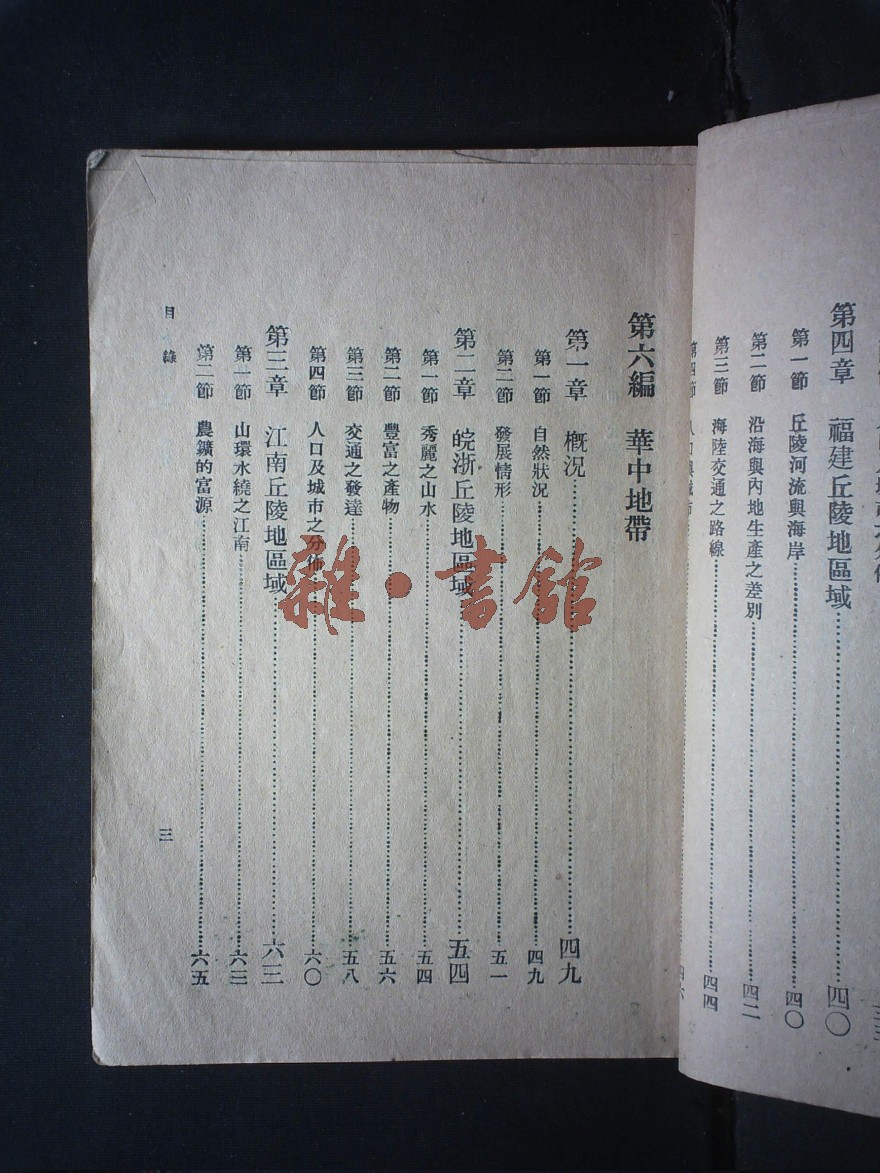 第四章 福建丘陵地區域 四〇
第一節 丘陵河流與海岸 四〇
第二節 沿海與內地生產之差別 四二
第三節 海陸交通之路線 四四
第四節 人口與城市 四六
第六編 華中地帶
第一章 概况 四九
第一節 自然狀况 四九
第二節 發展情形 五一
第二章 皖浙丘陵地區域 五四
第一節 秀麗之山水 五四
第二節 豐富之產物 五六
第三節 交通之發達 五八
第四節 人口及城市之分佈 六〇
第三章 江南丘陵地區域 六三
第一節 山環水繞之江南 六三
第二節 農鑛的富源 六五
目錄
三
雜·書館